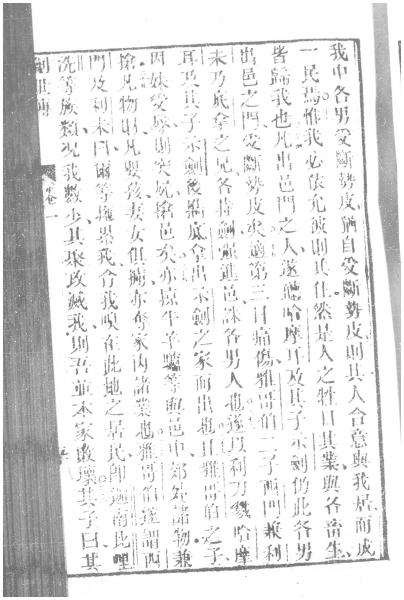 我中各男受斷勢皮、猶自受斷勢皮則其人合意與我居而成
一民焉惟我必依允彼則其住然是人之牲口其業與各畜生、
皆歸我也凡出邑門之人遂聽哈摩耳及其子示劍仍此各男
出邑之門受斷勢皮矣適第三日痛傷雅哥伯二子西門兼利
未乃底拿之兄各持劍強進邑誅各男人也遂以利刀戮哈摩
耳及其子示劍後攜底拿出示劍之家而出也且雅哥伯之子、
因妹受辱則突死搶邑矣亦掠牛子驢等與邑中郊外諸物兼
搶凡物財凡嬰孩妻女俱擄亦奪家內諸業也雅哥伯遂謂西
門及利未曰爾等擾累我令我臭在此地之居民即迦南比哩
洗等族類況我數少其聚攻滅我則吾並本家敗壞其子曰其
創世傳 卷一